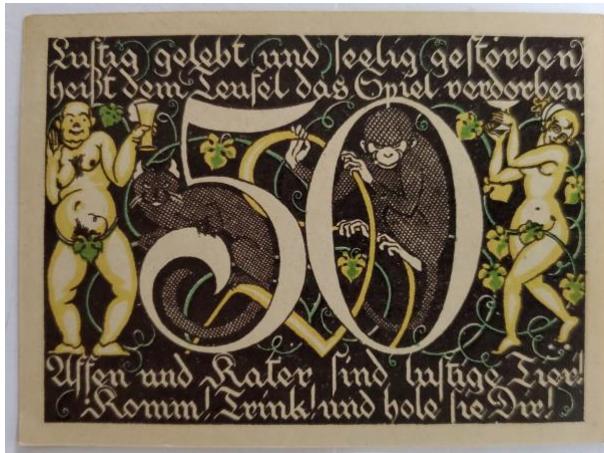 Lustig gelebt und seelig gestorben,
heißt dem Teufel das Spiel verdorben
50
Affen und Kater sind lustige Tier!
Komm! Trink! und hole sie Dir!